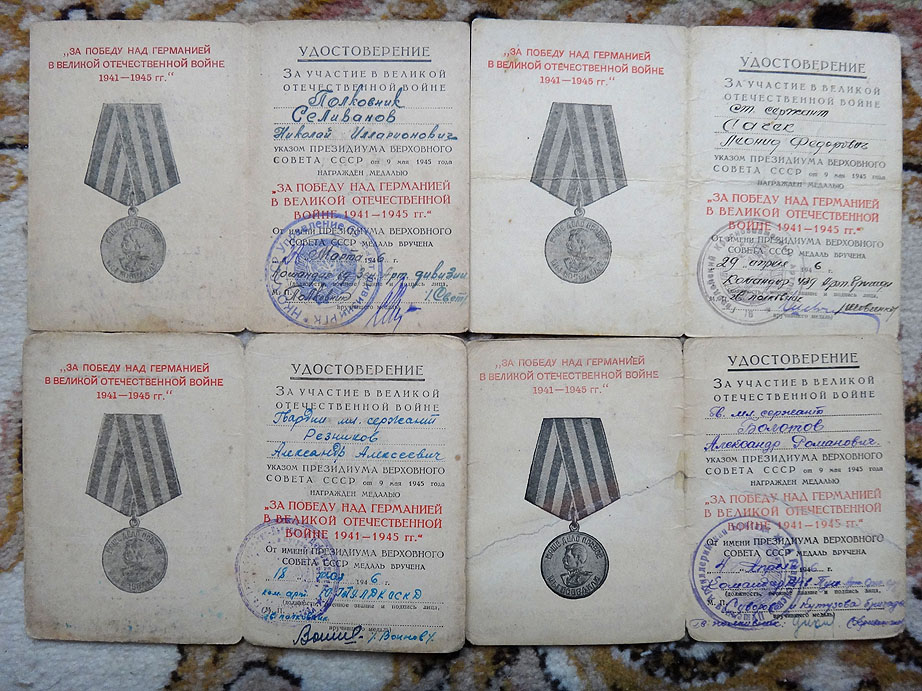 „ЗА ПОБЕДУ НАД ГЕРМАНИЕЙ
В ВЕЛИКОЙ ОТЕЧЕСТВЕННОЙ ВОЙНЕ
1941—1945 гг.“
УДОСТОВЕРЕНИЕ
ЗА УЧАСТИЕ В ВЕЛИКОЙ
ОТЕЧЕСТВЕННОЙ ВОЙНЕ
Полковник
Селиванов
Николай Илларионович
УКАЗОМ ПРЕЗИДИУМА ВЕРХОВНОГО
СОВЕТА СССР от 9 мая 1945 года
НАГРАЖДЕН МЕДАЛЬЮ
„ЗА ПОБЕДУ НАД ГЕРМАНИЕЙ
В ВЕЛИКОЙ ОТЕЧЕСТВЕННОЙ
ВОЙНЕ 1941—1945 гг.“
От имени ПРЕЗИДИУМА ВЕРХОВНОГО
СОВЕТА СССР МЕДАЛЬ ВРУЧЕНА
Марта 1946
Командир дивизии
М. П.
вручившего медаль)
„ЗА ПОБЕДУ НАД ГЕРМАНИЕЙ
В ВЕЛИКОЙ ОТЕЧЕСТВЕННОЙ ВОЙНЕ
1941—1945 гг.“
УДОСТОВЕРЕНИЕ
ЗА УЧАСТИЕ В ВЕЛИКОЙ
ОТЕЧЕСТВЕННОЙ ВОЙНЕ
ст. сержант
Леонид Федорович
УКАЗОМ ПРЕЗИДИУМА ВЕРХОВНОГО
СОВЕТА СССР от 9 мая 1945 года
НАГРАЖДЕН МЕДАЛЬЮ
„ЗА ПОБЕДУ НАД ГЕРМАНИЕЙ
В ВЕЛИКОЙ ОТЕЧЕСТВЕННОЙ
ВОЙНЕ 1941—1945 гг.“
От имени ПРЕЗИДИУМА ВЕРХОВНОГО
СОВЕТА СССР МЕДАЛЬ ВРУЧЕНА
29 апреля 1946
Командир бригады
М. П.
вручившего медаль)
„ЗА ПОБЕДУ НАД ГЕРМАНИЕЙ
В ВЕЛИКОЙ ОТЕЧЕСТВЕННОЙ ВОЙНЕ
1941—1945 гг.“
УДОСТОВЕРЕНИЕ
ЗА УЧАСТИЕ В ВЕЛИКОЙ
ОТЕЧЕСТВЕННОЙ ВОЙНЕ
Гвардии мл. сержант
Резников
Александр Алексеевич
УКАЗОМ ПРЕЗИДИУМА ВЕРХОВНОГО
СОВЕТА СССР от 9 мая 1945 года
НАГРАЖДЕН МЕДАЛЬЮ
„ЗА ПОБЕДУ НАД ГЕРМАНИЕЙ
В ВЕЛИКОЙ ОТЕЧЕСТВЕННОЙ
ВОЙНЕ 1941—1945 гг.“
От имени ПРЕЗИДИУМА ВЕРХОВНОГО
СОВЕТА СССР МЕДАЛЬ ВРУЧЕНА
18 мая 1946
(должность, воинское звание и подпись лица,
полковник
вручившего медаль)
„ЗА ПОБЕДУ НАД ГЕРМАНИЕЙ
В ВЕЛИКОЙ ОТЕЧЕСТВЕННОЙ ВОЙНЕ
1941—1945 гг.“
УДОСТОВЕРЕНИЕ
ЗА УЧАСТИЕ В ВЕЛИКОЙ
ОТЕЧЕСТВЕННОЙ ВОЙНЕ
Гв. мл. сержант
Болотов
Александр Романович
УКАЗОМ ПРЕЗИДИУМА ВЕРХОВНОГО
СОВЕТА СССР от 9 мая 1945 года
НАГРАЖДЕН МЕДАЛЬЮ
„ЗА ПОБЕДУ НАД ГЕРМАНИЕЙ
В ВЕЛИКОЙ ОТЕЧЕСТВЕННОЙ
ВОЙНЕ 1941—1945 гг.“
От имени ПРЕЗИДИУМА ВЕРХОВНОГО
СОВЕТА СССР МЕДАЛЬ ВРУЧЕНА
4 апреля 1946
Командир
(должность, воинское звание и подпись лица,
Суворова и Кутузова бригады
Гв. полковник
вручившего медаль)